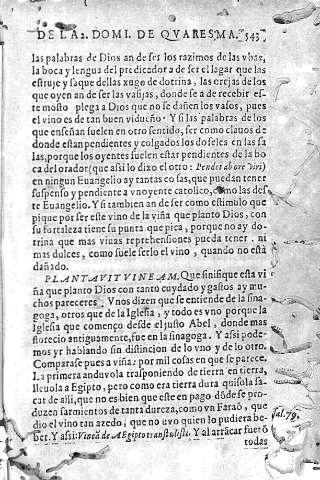 DE LA 2. DOMI. DE QVARESMA. 543
las palabras de Dios an de ser los razimos de las vbas,
la boca y lengua del predicador a de ser el lagar que las
estruje y saque dellas xugo de dotrina, las orejas de los
que oyen an de ser las vasijas, donde se a de recebir es-
te mosto plega a Dios que no se dañen los vasos, pues
el vino es de tan buen vidueño. Y si las palabras de los
que enseñan suelen en otro sentido, ser como clauos de
donde estan pendientes y colgados los doseles en las sa
las, porque los oyentes suelen estar pendientes de la bo
ca del orador (que assi lo dixo el otro: Pendet ab ore viri)
en ningun Euangelio ay tantas cosas, que puedan tener
suspenso y pendiente a vn oyente catolico, como las des
te Euangelio. Y si tambien an de ser como estimulo que
pique por ser este vino de la viña que planto Dios, con
su fortaleza tiene su punta que pica, porque no ay do-
trina que mas viuas reprehensiones pueda tener, ni
mas dulces, como suele serlo el vino, quando no està
dañado.
PLANTAVIT VINEAM. Que sinifique esta vi
ña que planto Dios con tanto cuydado y gastos ay mu-
chos pareceres. Vnos dizen que se entiende de la sina-
goga, otros que de la Iglesia, y todo es vno porque la
Iglesia que començo desde el justo Abel, donde mas
florecio antiguamente, fue en la sinagoga. Y assi pode-
mos yr hablando sin distincion de lo vno y de lo otro.
Comparase pues a viña: por mil cosas en que se parece.
La primera anduvola trasponiendo de tierra en tierra,
lleuola a Egipto, pero como era tierra dura quisola sa-
car de alli, que no es bien que este en pago dōde se pro-
duzen sarmientos de tanta dureza, como vn Faraō, que
dio el vino tan azedo, que no uvo quien lo pudiera be-
ber. Y assi: Vineā de AEgipto transtulisti. Y al arrācar fue ō
sal. 79.
todas